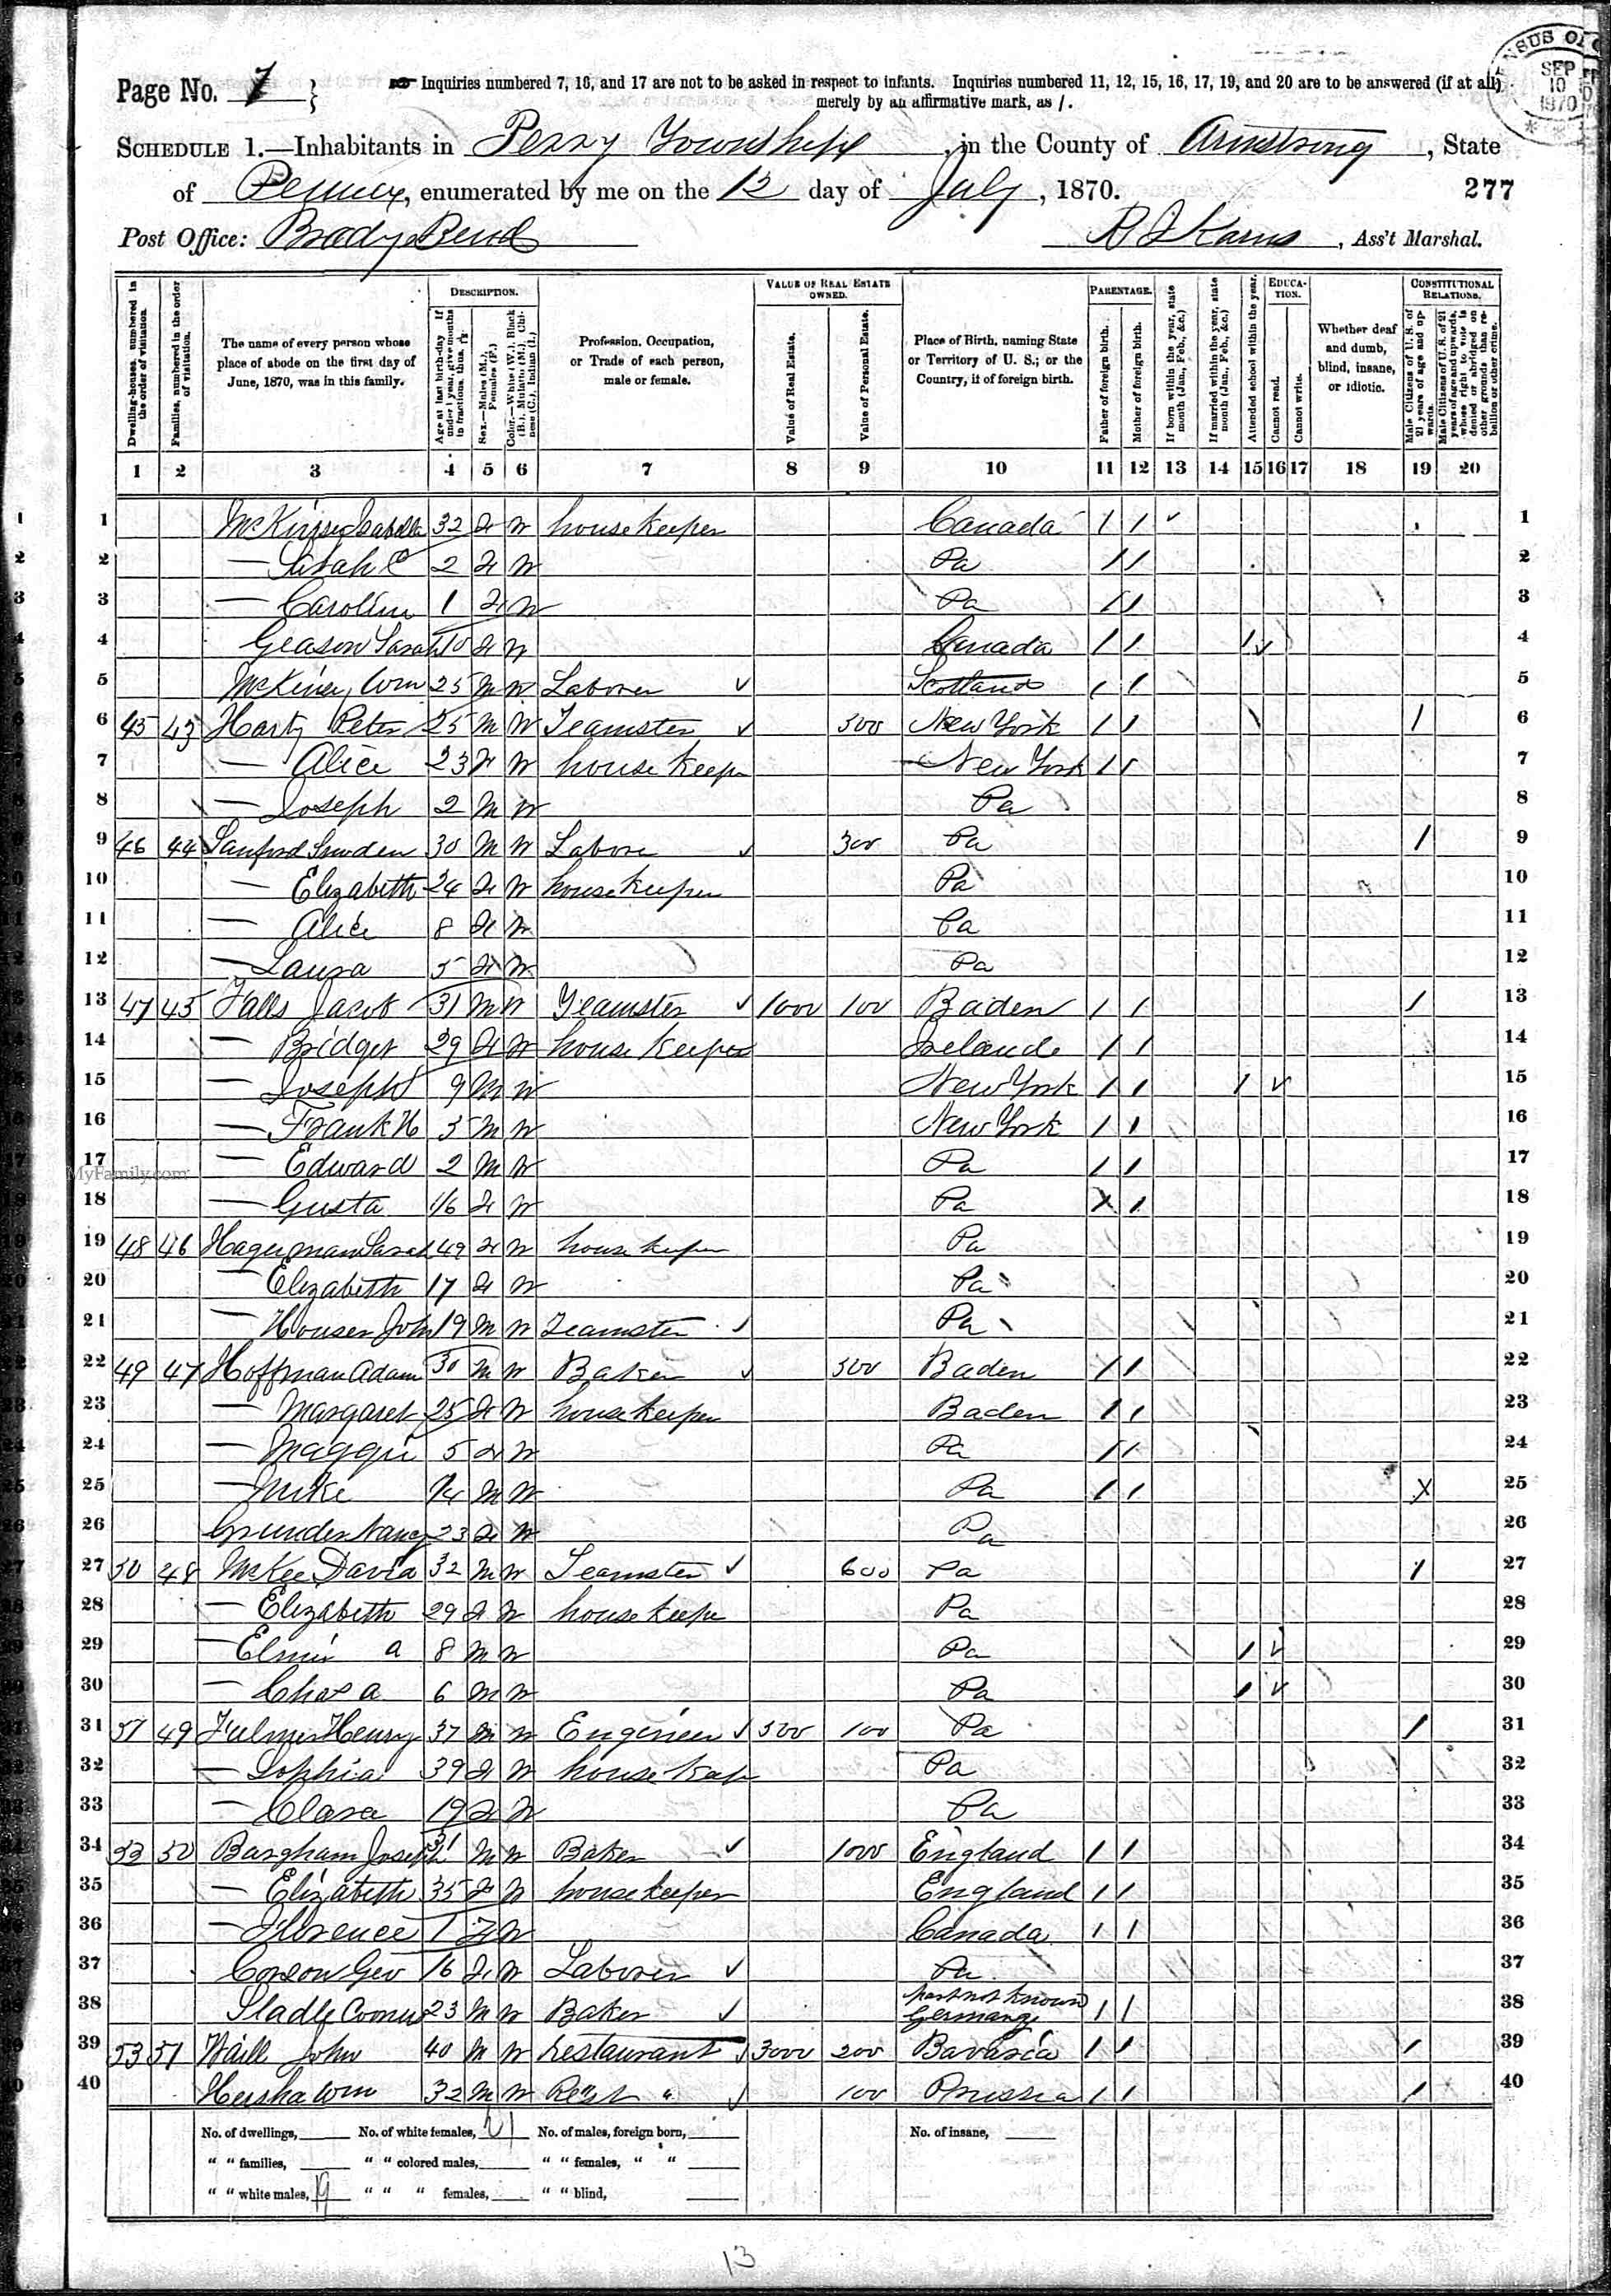 Page No. 7 }
Inquiries numbered 7, 16, and 17 are not to be asked in respect to infants. Inquiries numbered 11, 12, 15, 16, 17, 19, and 20 are to be answered (if at all)
merely by an affirmative mark, as /.
SCHEDULE 1.—Inhabitants in Perry Township, in the County of Armstrong, State
of Penna, enumerated by me on the 12 day of July, 1870.
277
Post Office: Bradys Bend
R J Karns, Ass't Marshal.
SEP
10
1870
Dwelling-houses, numbered in the order of visitation.
Families, numbered in the order of visitation.
The name of every person whose place of abode on the first day of June, 1870, was in this family.
DESCRIPTION.
Age at last birth-day. If under 1 year, give months in fractions, thus, 3/12.
Sex.—Males (M.), Females (F.)
Color.—White (W.), Black (B.), Mulatto (M.), Chinese (C.), Indian (I.)
Profession, Occupation, or Trade of each person, male or female.
VALUE OF REAL ESTATE OWNED.
Value of Real Estate.
Value of Personal Estate.
Place of Birth, naming State or Territory of U. S.; or the Country, if of foreign birth.
PARENTAGE.
Father of foreign birth.
Mother of foreign birth.
If born within the year, state month (Jan., Feb., &c.)
If married within the year, state month (Jan., Feb., &c.)
Attended school within the year.
EDUCATION.
Cannot read.
Cannot write.
Whether deaf and dumb, blind, insane, or idiotic.
CONSTITUTIONAL RELATIONS.
Male Citizens of U. S. of 21 years of age and upwards.
Male Citizens of U. S. of 21 years of age and upwards, whose right to vote is denied or abridged on other grounds than rebellion or other crime.
1 2 3 4 5 6 7 8 9 10 11 12 13 14 15 16 17 18 19 20
1 Isabella 32 F W housekeeper Canada / / 1
2 — Sarah E 2 F W Pa / / 2
3 — Caroline 1 F W Pa / / 3
4 Geason Sarah 10 F W Canada / / / 4
5 McKiney Wm 25 M W Laborer Scotland / / 5
6 45 43 Harty Peter 25 M W Teamster 500 New York / / / 6
7 — Alice 23 F W house Keeper New York / / 7
8 — Joseph 2 M W Pa 8
9 46 44 Sanford Snowden 30 M W Labore 300 Pa / 9
10 — Elizabeth 24 F W housekeeper Pa 10
11 — Alice 8 F W Pa 11
12 — Laura 5 F W Pa 12
13 47 45 Falls Jacob 31 M W Teamster 1000 100 Baden / / / 13
14 — Bridget 29 F W house Keeper Ireland / / 14
15 — Joseph 9 M W New York / / / 15
16 — Frank H 5 M W New York / / 16
17 — Edward 2 M W Pa / / 17
18 — Gusta F W Pa X / 18
19 48 46 Hagerman Sarah 49 F W house keeper Pa 19
20 — Elizabeth 17 F W Pa 20
21 — Houser John 19 M W Teamster Pa 21
22 49 47 Hoffman Adam 30 M W Baker 500 Baden / / 22
23 — Margaret 25 F W house keeper Baden / / 23
24 — Maggie 5 F W Pa / / 24
25 — Mike M W Pa / / X 25
26 Grunder Nancy 23 F W Pa 26
27 50 48 McKee David 32 M W Teamster 600 Pa / 27
28 — Elizabeth 29 F W house keeper Pa 28
29 — a 8 M W Pa / 29
30 — Chas a 6 M W Pa / 30
31 51 49 Fulmer Henry 37 M W Engineer 500 100 Pa / 31
32 — Sophia 39 F W house Keep Pa 32
33 — Clara 19 F W Pa 33
34 52 50 Bargham Joseph 31 M W Baker 1000 England / / 34
35 — Elizabeth 35 F W house keeper England / / 35
36 — Florence 1 F W Canada / / 36
37 Corson Geo 16 W Laborer Pa 37
38 23 M W Baker part not known Germany / / 38
39 53 51 John 40 M W Restaurant 3000 200 Bavaria / / / 39
40 Wm 32 M W Rest " 100 Prussia / / / 40
No. of dwellings, No. of white females, 21 No. of males, foreign born, No. of insane,
" " families, " " colored males, " " females, " "
" " white males, 19 " " " females, " " blind,
MyFamily.com
13